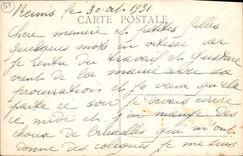 51
Reims le 30 oct 1931
CARTE POSTALE
Chère memere et petites filles
quelques mots en vitesse car
je rentre du travail et Gustave
vient de la mairie avec sa
procuration et je veux quelle
parte ce soir je devais écrire
ce midi et j'ai mangé des
choux de Bruxelles qui m'ont
donné des coliques je me suis